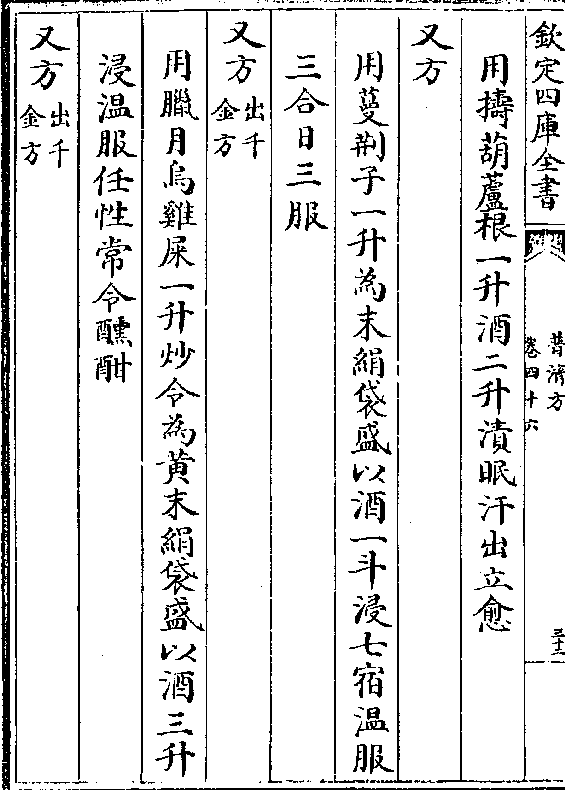 欽定四庫全書
普濟方
卷四十六
三十二
用擣葫蘆根一升酒二升漬眠汗出立愈
又方
用蔓荆子一升為末絹袋盛以酒一斗浸七宿温服
三合日三服
又方出千金方
用臘月烏雞屎一升炒令為黄末絹袋盛以酒三升
浸温服任性常令醺酣
又方出千金方